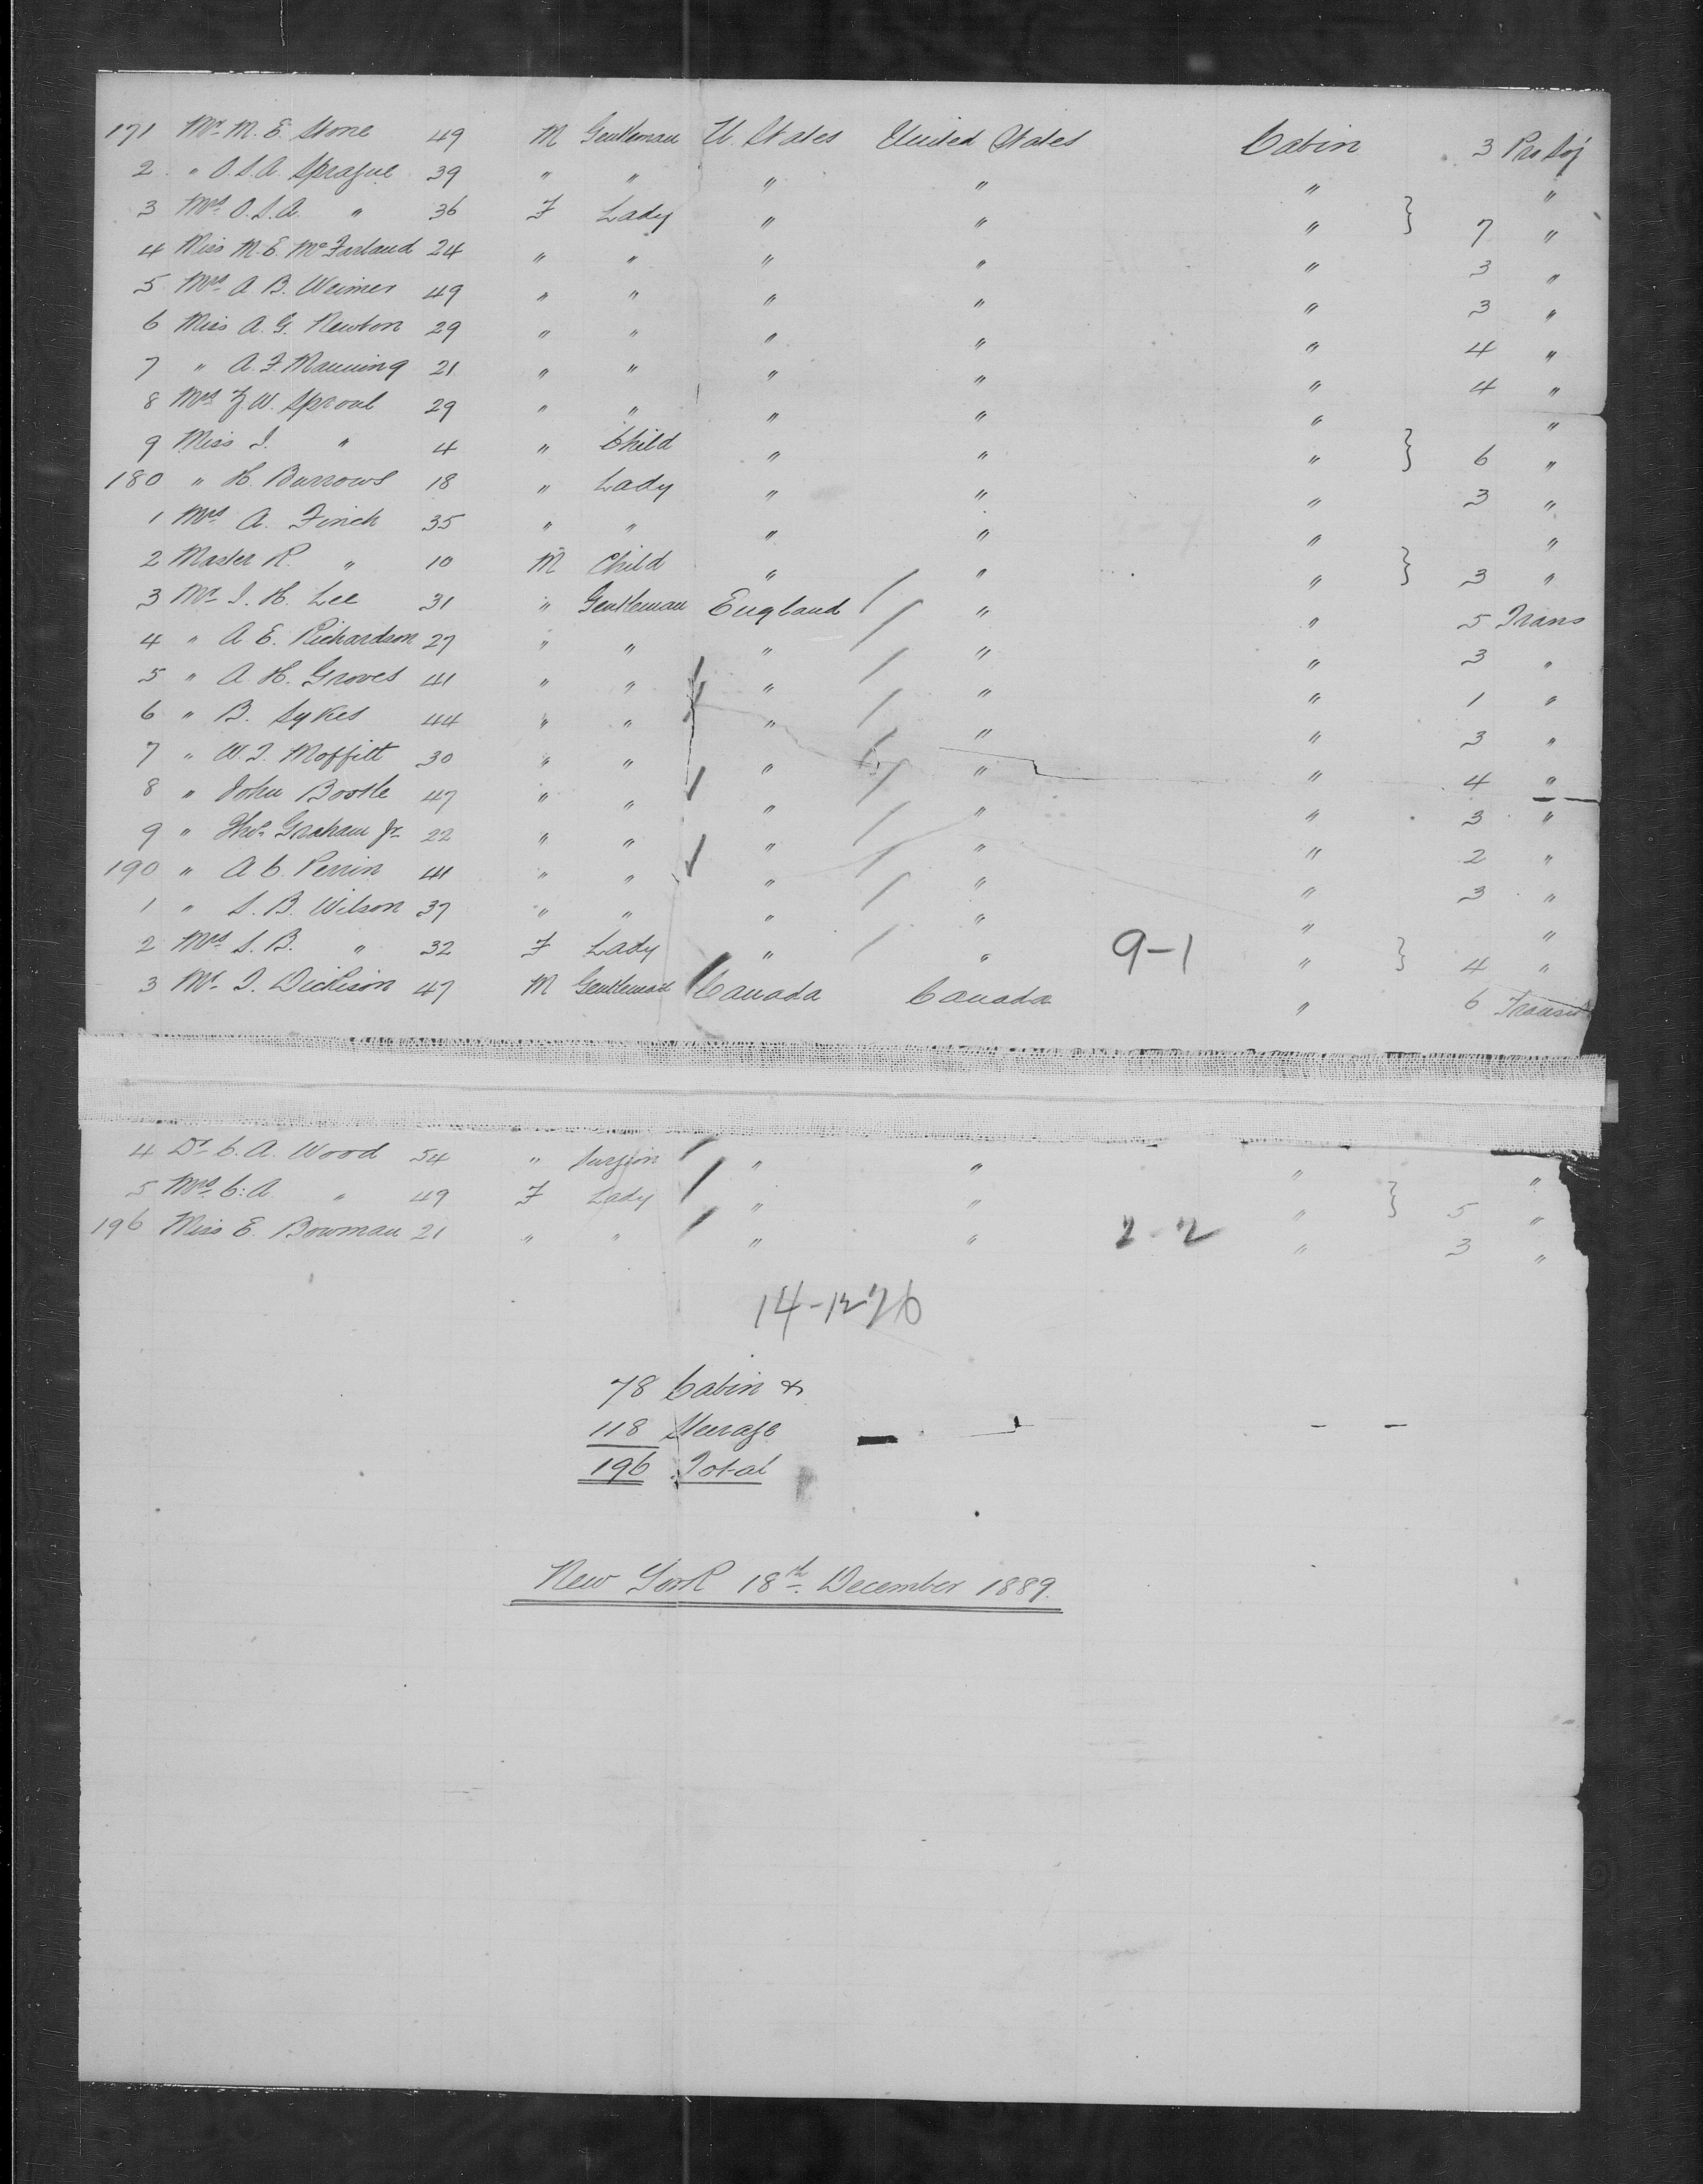 171 Mr. M. E. Stone 49 M Gentleman U. States United States Cabin 3 Pro Soj
2 " O. S. A. Sprague 39 " " " " " "
3 Mrs. O. S. A. " 36 F Lady " " " } 7 "
4 Miss M. E. McFarland 24 " " " " " 3 "
5 Mrs. A. B. Weimer 49 " " " " " 3 "
6 Miss A. G. Newton 29 " " " " " 4 "
7 " A. F. Manning 21 " " " " " 4 "
8 Mrs. F. W. Sproul 29 " " " " " "
9 Miss I. " 4 " Child " " " } 6 "
180 " H. Burrows 18 " Lady " " " 3 "
1 Mrs. A. Finch 35 " " " " " "
2 Master R. " 10 M Child " " " } 3 "
3 Mr. I. H. Lee 31 " Gentleman England / " " 5 Trans
4 " A. E. Richardson 27 " " " / " " 3 "
5 " A. H. Groves 41 " " " / " " 1 "
6 " B. Sykes 44 " " " / " " 3 "
7 " W. I. Moffitt 30 " " " / " " 4 "
8 " John Boothe 47 " " " / " " 3 "
9 " Thos. Graham Jr. 22 " " " / " " 2 "
190 " A. C. Perrin 41 " " " / " " 3 "
1 " S. B. Wilson 37 " " " / " " "
2 Mrs. S. B. " 32 F Lady " / " 9-1 " } 4 "
3 Mr. I. Dickison 47 M Gentleman / Canada Canada " 6 Transit
4 Dr. C. A. Wood 54 " Surgeon / " " " "
5 Mrs. C. A. " 49 F Lady / " " " } 5 "
196 Miss E. Bowman 21 " " / " " 2-2 " 3 "
78 Cabin &
118 Steerage
196 Total
New York 18th December 1889.